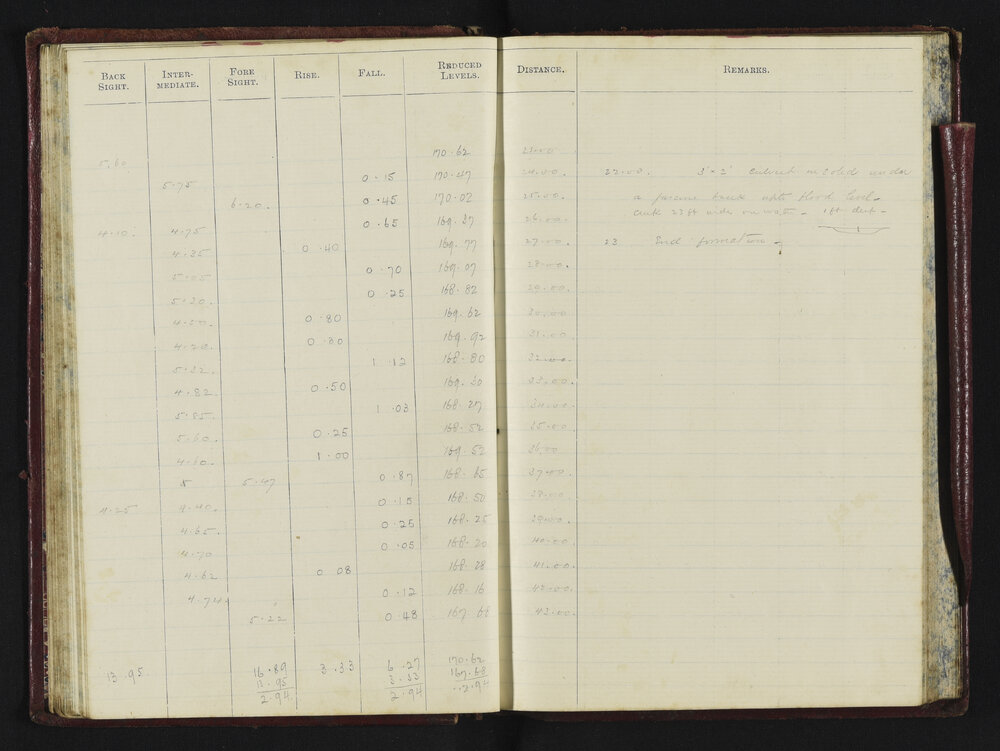 BACK SIGHT. INTER-MEDIATE. FORE SIGHT. RISE. FALL. REDUCED LEVELS. DISTANCE. REMARKS.
5.60 170.62 23.00
5.75 0.15 170.47 24.00. 22.00. 3' x 2' culvert in solid under
6.20. 0.45 170.02 25.00. a farm track flood level
4.10. 4.75 0.65 169.37 26.00. 23 ft wide on 1 ft
4.35 0.40 169.77 27.00. 23 End formation
5.05 0.70 169.07 28.00.
5.30. 0.25 168.82 29.00.
4.50. 0.80 169.62 30.00
4.20. 0.30 169.92 31.00.
5.32. 1.12 168.80 32.00.
4.82. 0.50 169.30 33.00.
5.85. 1.03 168.27 34.00.
5.60. 0.25 168.52 35.00
4.60. 1.00 169.52 36.00
5.47 0.87 168.65 37.00.
4.25 4.40. 0.15 168.50 38.00.
4.65. 0.25 168.25 39.00.
4.70 0.05 168.20 40.00.
4.62 0 08 168.28 41.00.
4.74. 0.12 168.16 42.00.
5.22 0.48 167.68 43.00.
13.95 16.89 3.33 6.27 170.62
13.95 3.33 167.68
2.94 2.94 2.94